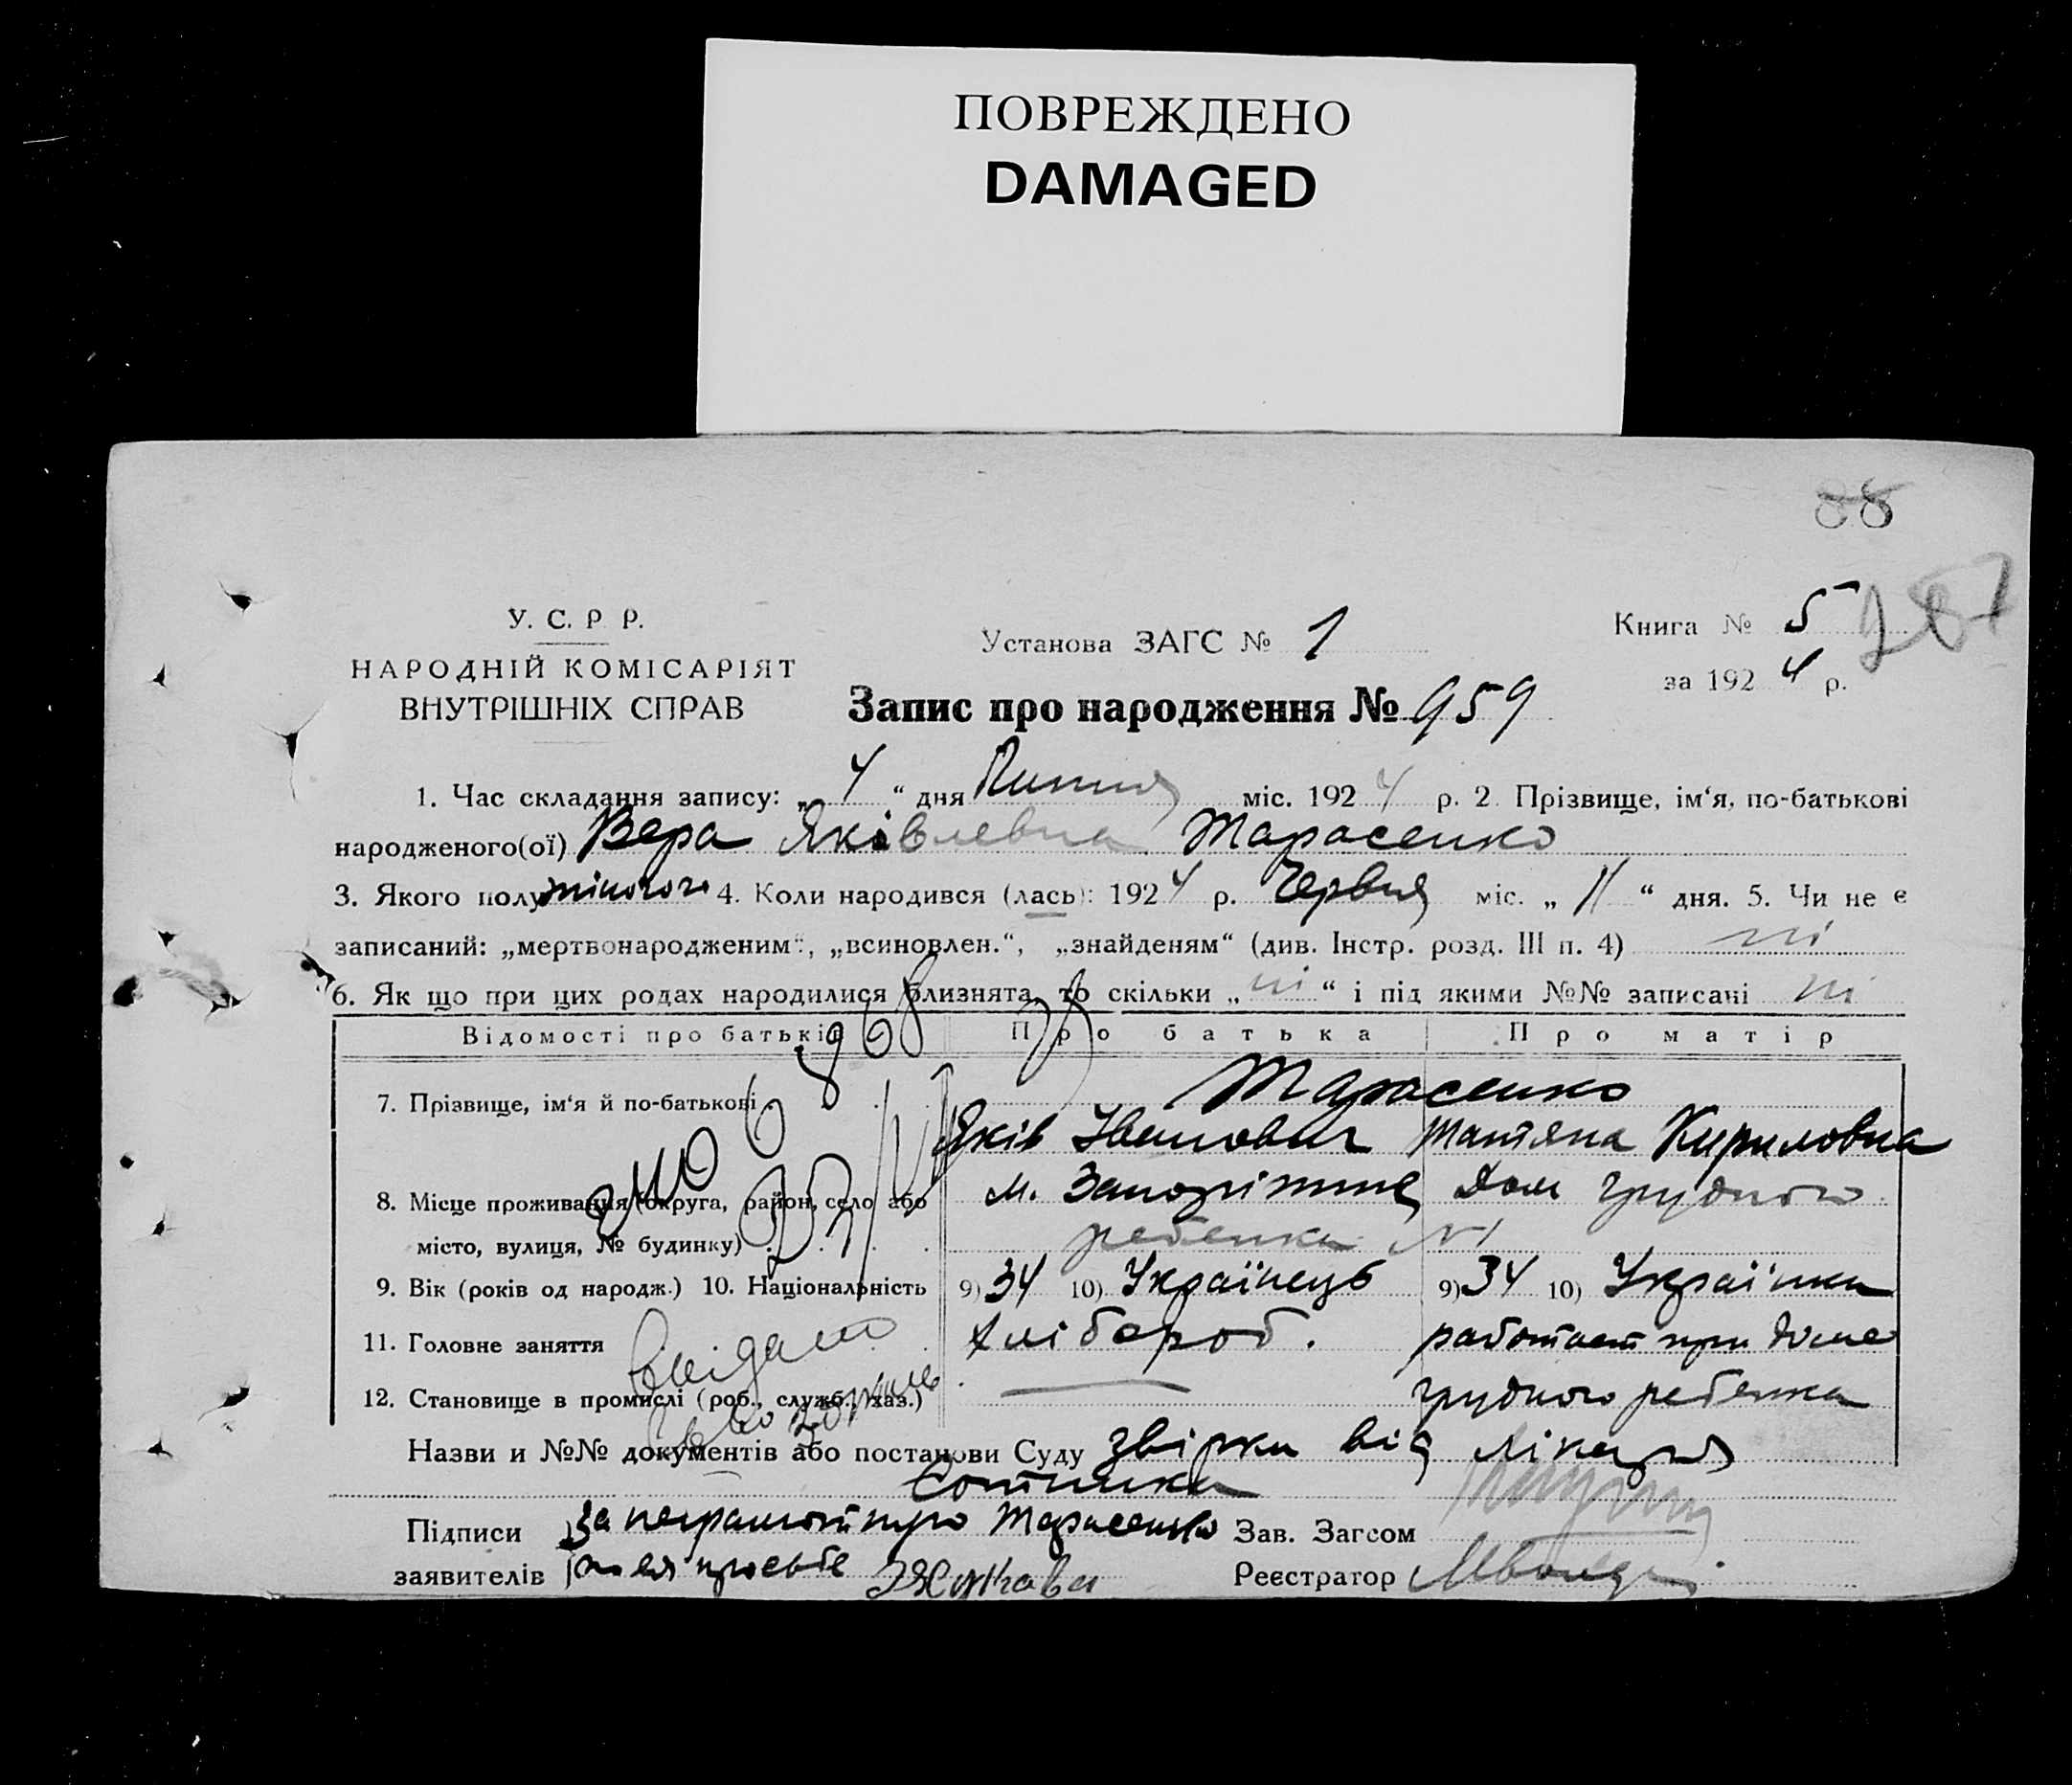 ПОВРЕЖДЕНО
DAMAGED
88
У. С. Р Р.
НАРОДНІЙ КОМІСАРІЯТ
ВНУТРІШНІХ СПРАВ
Установа ЗАГС № 1
Книга № 5
за 1924 р.
Запис про народження № 959
1. Час складання запису: „ 4 “ дня Липня міс. 1924 р. 2. Прізвище, ім‘я, по-батькові
народженого(ої) Вера Яківлевна Тарасенко
3. Якого полу жіночого 4. Коли народився (лась): 1924 р. Червня міс. „ 11 “ дня. 5. Чи не є
записаний: „мертвонародженим“, „всиновлен.“, „знайденям“ (див. Інстр. розд. III п. 4) ні
6. Як що при цих родах народилися близнята, то скільки „ ні “ і під якими №№ записані ні
Відомості про батьків Про батька Про матір
7. Прізвище, ім‘я й по-батькові Тарасенко
Яків Іванович Татяна Кириловна
8. Місце проживання (округа, район, село або м. Запоріжжя Дом грудного
місто, вулиця, № будинку) ребенка №1
9. Вік (років од народж.) 10. Національність 9) 34 10) Українець 9) 34 10) Українка
11. Головне заняття хлібороб. работает при доме
12. Становище в промислі (роб., служб., хаз.) — грудного ребенка
Назви и №№ документів або постанови Суду звірки від лікаря
Сотника
Підписи За неграмотную Тарасенко Зав. Загсом
заявителів по ея просьбе Реєстратор